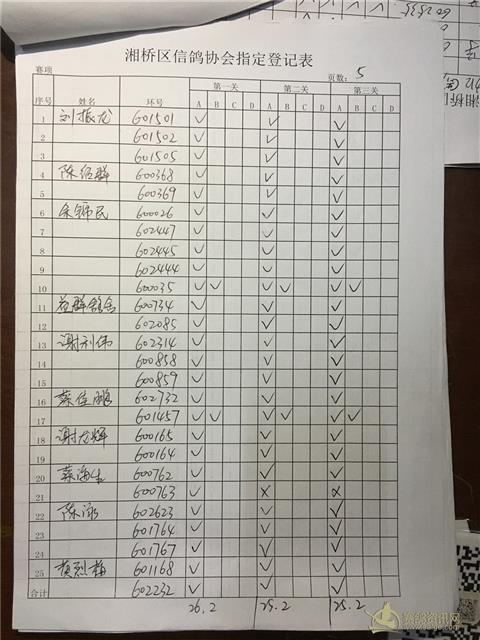 湘桥区信鸽协会指定登记表
赛项 页数: 5
序号 姓名 环号 第一关 第二关 第三关
A B C D A B C D A B C D
1 刘振龙 601501 ✓ ✓ ✓
2 601502 ✓ ✓ ✓
3 601505 ✓ ✓ ✓
4 陈绍群 600368 ✓ ✓ ✓
5 600369 ✓ ✓ ✓
6 余锦民 600026 ✓ ✓ ✓
7 602447 ✓ ✓ ✓
8 602445 ✓ ✓ ✓
9 602444 ✓ ✓ ✓
10 600035 ✓ ✓ ✓ ✓ ✓ ✓
11 群鸽舍 600734 ✓ ✓ ✓
12 602085 ✓ ✓ ✓
13 谢利伟 602314 ✓ ✓ ✓
14 600858 ✓ ✓ ✓
15 600859 ✓ ✓ ✓
16 蔡佳鹏 602732 ✓ ✓ ✓
17 601457 ✓ ✓ ✓ ✓ ✓ ✓
18 谢龙辉 600165 ✓ ✓ ✓
19 600164 ✓ ✓ ✓
20 蔡海生 600762 ✓ ✓ ✓
21 600763 ✓ × ×
22 陈泳 602623 ✓ ✓ ✓
23 601764 ✓ ✓ ✓
24 601767 ✓ ✓ ✓
25 黄烈梅 601168 ✓ ✓ ✓
合计 602232 ✓ ✓ ✓
26.2 25.2 25.2